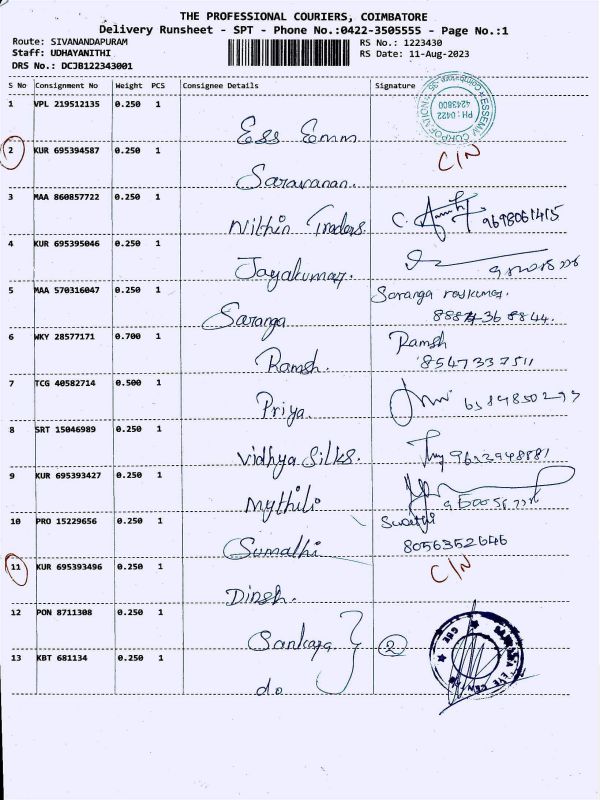 THE PROFESSIONAL COURIERS, COIMBATORE
Delivery Runsheet - SPT - Phone No.:0422-3505555 - Page No.:1
Route: SIVANANDAPURAM RS No.: 1223430
Staff: UDHAYANITHI RS Date: 11-Aug-2023
DRS No.: DCJB122343001
S No Consignment No Weight PCS Consignee Details Signature
1 VPL 219512135 0.250 1 Ess Emm
PH : 0422 4243800
2 KUR 695394587 0.250 1 Saravanan. C/N
3 MAA 860857722 0.250 1 Nithin Traders. C. 9698061415
4 KUR 695395046 0.250 1 Jayakumar.
5 MAA 570316047 0.250 1 Saranga Saranga rajkumar.
8884368844.
6 WKY 28577171 0.700 1 Ramsh. Ramsh
8547337511
7 TCG 40582714 0.500 1 Priya.
8 SRT 15046989 0.250 1 Vidhya Silks. 9632948881
9 KUR 695393427 0.250 1 Mythili
10 PRO 15229656 0.250 1 Sumathi Swathi
8056352646
11 KUR 695393496 0.250 1 Dinsh. C/N
12 PON 8711308 0.250 1 Sankara 2
13 KBT 681134 0.250 1 do